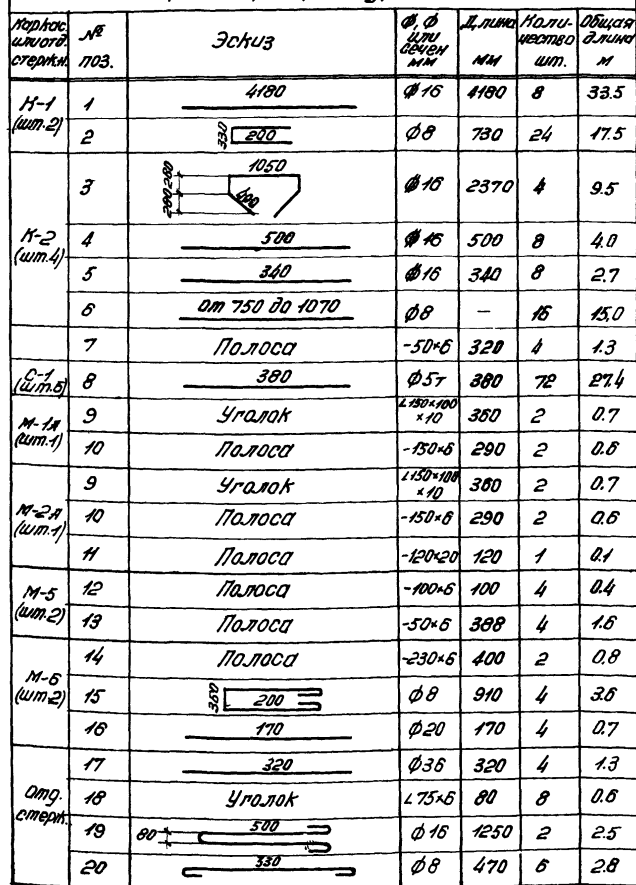 Каркас или отд. стержн. № поз. Эскиз Ф, ф или сечен мм Длина мм Коли-чество шт. Общая длина м
К-1 (шт.2) 1 4180 Ф16 4180 8 33.5
2 330 200 ф8 730 24 17.5
К-2 (шт.4) 3 1050 280 280 400 Ф16 2370 4 9.5
4 500 Ф16 500 8 4.0
5 340 Ф16 340 8 2.7
6 от 750 до 1070 ф8 – 16 15,0
7 Полоса -50×6 320 4 1.3
С-1 (шт.6) 8 380 ф5т 380 72 27.4
М-1А (шт.1) 9 Уголок L150×100×10 360 2 0.7
10 Полоса -150×6 290 2 0.6
М-2А (шт.1) 9 Уголок L150×100×10 360 2 0.7
10 Полоса -150×6 290 2 0.6
11 Полоса -120×20 120 1 0.1
М-5 (шт.2) 12 Полоса -100×6 100 4 0.4
13 Полоса -50×6 388 4 1.6
М-6 (шт2) 14 Полоса -230×6 400 2 0.8
15 360 200 ф8 910 4 3.6
16 170 ф20 170 4 0.7
Отд. стерж. 17 320 ф36 320 4 1.3
18 Уголок L75×6 80 8 0.6
19 80 500 ф16 1250 2 2.5
20 330 ф8 470 6 2.8